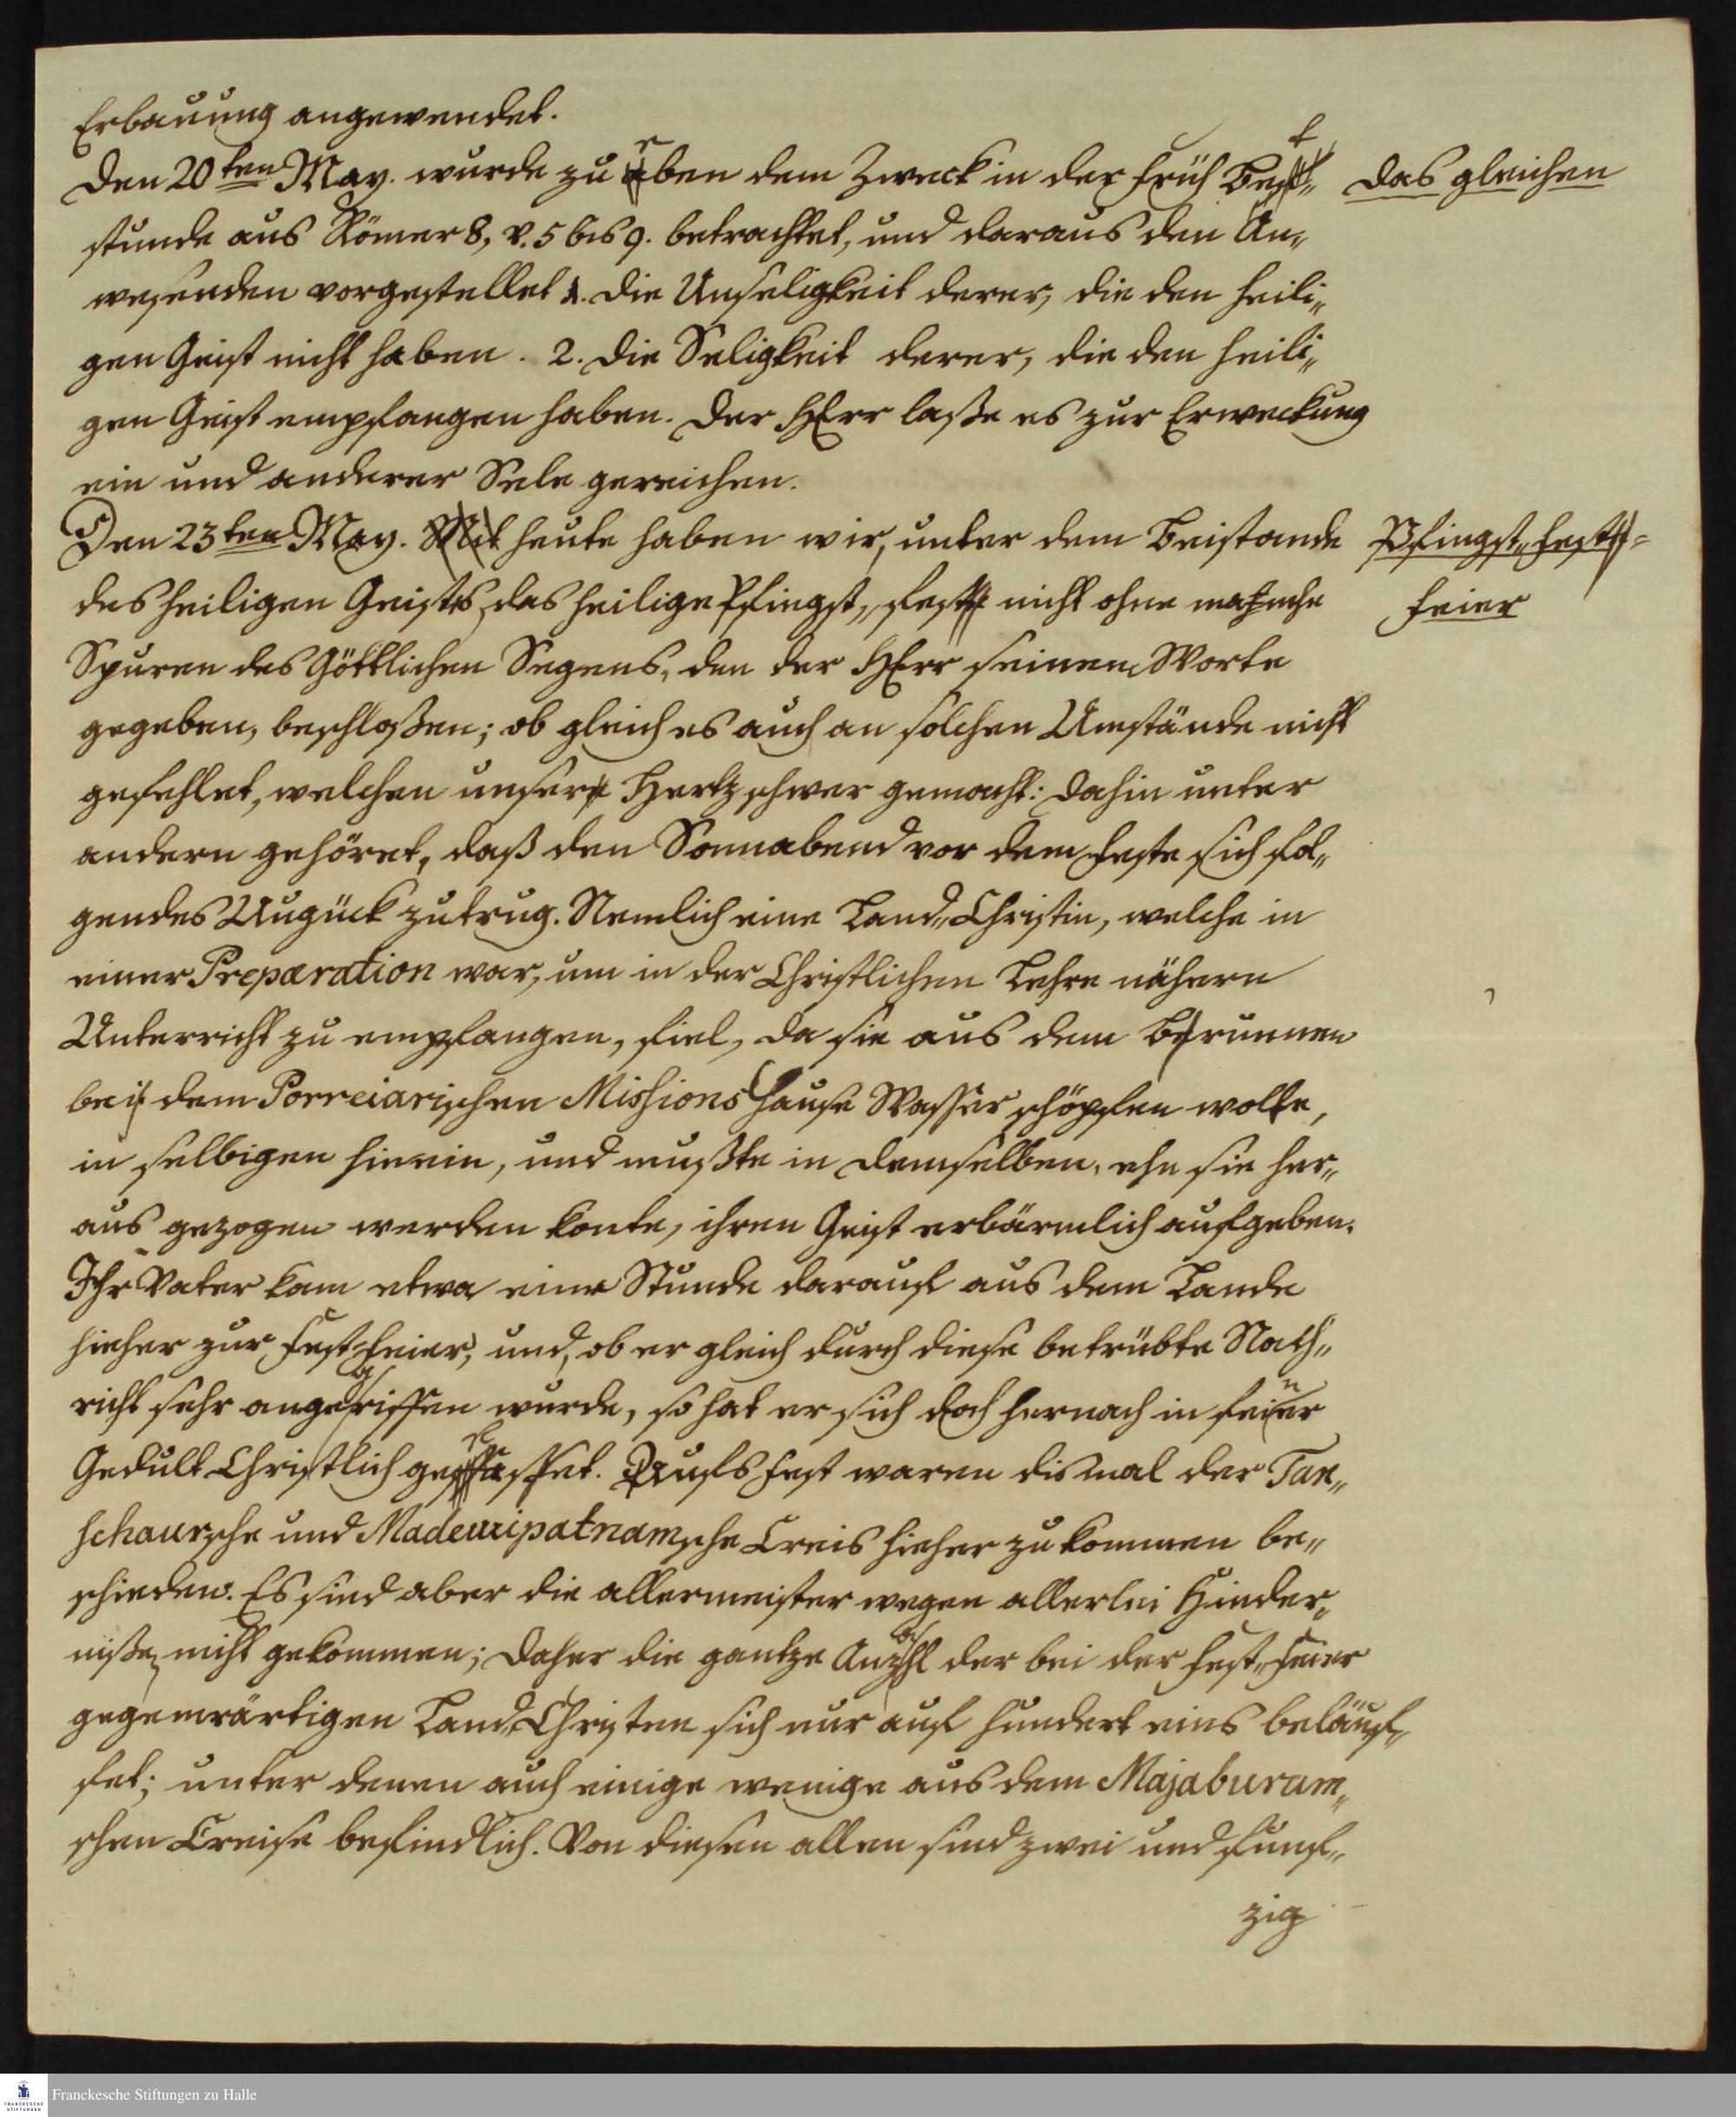 Erbauung angewendet.
Den 20ten May. wurde zu eben dem Zweck in der früh Bet„
das gleichen
stunde aus Römer 8, v. 5 bis 9. betrachtet, und daraus den An„
wesenden vorgestellet 1. die Unseligkeit derer, die den heili„
gen Geist nicht haben. 2. die Seligkeit derer, die den heili„
gen Geist empfangen haben. Der HErr laße es zur Erweckung
ein und anderer Sele gereichen.
Den 23ten May. Mit heute haben wir, unter dem Beistande
Pfingst„ fest=
des heiligen Geistes, das heilige Pfingst„ fest nicht ohne manche
feier
Spuren des Göttlichen Segens, den der HErr seinem Worte
gegeben, beschloßen; ob gleich es auch an solchen Umstände nicht
gefehlet, welchen unser Hertz schwer gemacht: dahin unter
andern gehöret, daß den Sonnabend vor dem feste sich fol„
gendes Ungück zutrug. Nemlich eine Land„ Christin, welche in
einer Preparation war, um in der Christlichen Lehre nähern
Unterricht zu empfangen, fiel, da sie aus dem Brunnen
bei dem Porreiarischen Missions Hause Wasser schöpfen wolte,
in selbigen hinein, und mußte in demselben, ehe sie her„
aus gezogen werden konte, ihren Geist erbärmlich aufgeben.
Ihr Vater kam etwa eine Stunde darauf aus dem Lande
hieher zur fest„feier, und, ob er gleich durch diese betrübte Nach„
richt sehr angegriffen wurde, so hat er sich doch hernach in feiner
Gedult Christlich gefasset. Aufs fest waren dismal der Tan„
schaursche und Madewipatnamsche Creis hieher zu kommen be„
schieden. Es sind aber die allermeister wegen allerlei Hinder„
niße, nicht gekommen; daher die gantze Anzahl der bei der fest„feier
gegenwärtigen Land„Christen sich nur auf hundert eins beläuf„
fet; unter denen auch einige wenige aus dem Majaburam„
schen Creise befindlich. Von diesen allen sind zwei und funf„
zig
Franckesche Stiftungen zu Halle
FRANCKESCHE
STIFTUNGEN